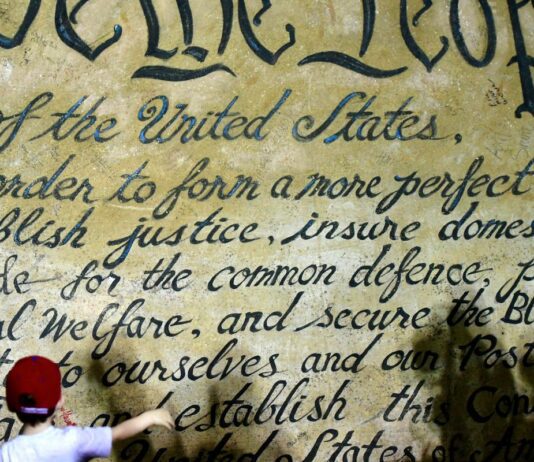 We the People
of the United States,
order to form a more perfect
blish justice, insure domes
de for the common defence, p
al Welfare, and secure the Bl
to ourselves and our Post
and establish this Con
United States of Am